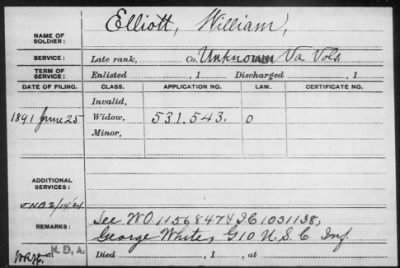 NAME OF SOLDIER: Elliott, William,
SERVICE: Late rank, Co. Unknown Va Vols
TERM OF SERVICE: Enlisted , 1 Discharged , 1
DATE OF FILING. CLASS. APPLICATION NO. LAW. CERTIFICATE NO.
Invalid,
1891 June 25 Widow, 531.543. O
Minor,
ADDITIONAL SERVICES:
REMARKS: See WO 1156847 & IC 1031138,
George White, G 10 U.S.C. Inf
N.D.A. Died , 1 , at